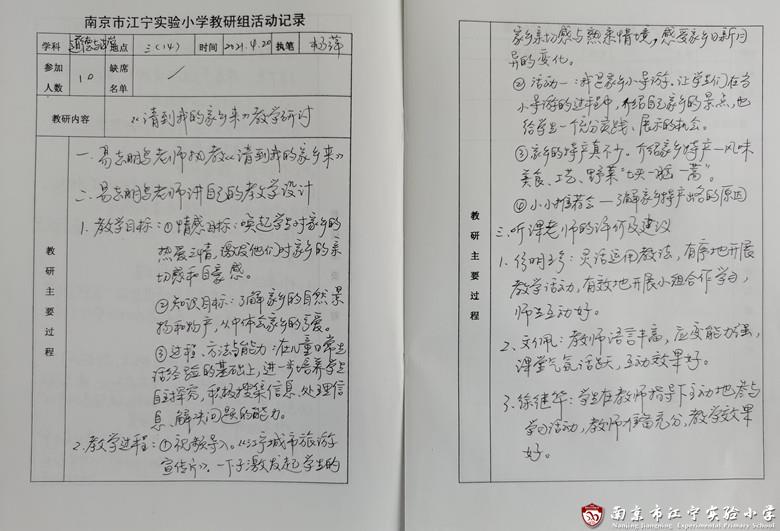 南京市江宁实验小学教研组活动记录
学科 道德与法治 地点 三(14) 时间 2021.4.20 执笔 杨萍
参加人数 10 缺席名单 /
教研内容 《请到我的家乡来》教学研讨
教研主要过程
一、易志鹏老师执教《请到我的家乡来》
二、易志鹏老师讲自己的教学设计
1.教学目标:①情感目标:唤起学生对家乡的
热爱之情,激发他们对家乡的亲
切感和自豪感。
②知识目标:了解家乡的自然景
物和物产,从中体会家乡的可爱。
③过程、方法与能力:在儿童日常生
活经验的基础上,进一步培养学生
自主探究,积极搜集信息、处理信
息、解决问题的能力。
2.教学过程:①视频导入。《江宁城市旅游
宣传片》,一下子激发起学生的
家乡亲切感与熟悉情境,感受家乡日新月
异的变化。
②活动一:我是家乡小导游。让学生们在当
小导游的过程中,介绍自己家乡的景点,也
给学生一个充分实践、展示的机会。
③家乡的特产真不少。介绍家乡特产—风味
美食、工艺、野菜“七头一脑一蒿”。
④小小推荐会—了解家乡特产出名的原因
教研主要过程
三、听课老师的评价及建议
1. 灵活运用教法,有序地开展
教学活动,有效地开展小组合作学习,
师生互动好。
2.文佩:教师语言丰富,应变能力强,
课堂气氛活跃,互动效果好。
3.徐继华:学生在教师指导下主动地参与
学习活动,教师准备充分,教学效果
好。
南京市江宁实验小学
Nanjing Jiangning Experimental Primary School